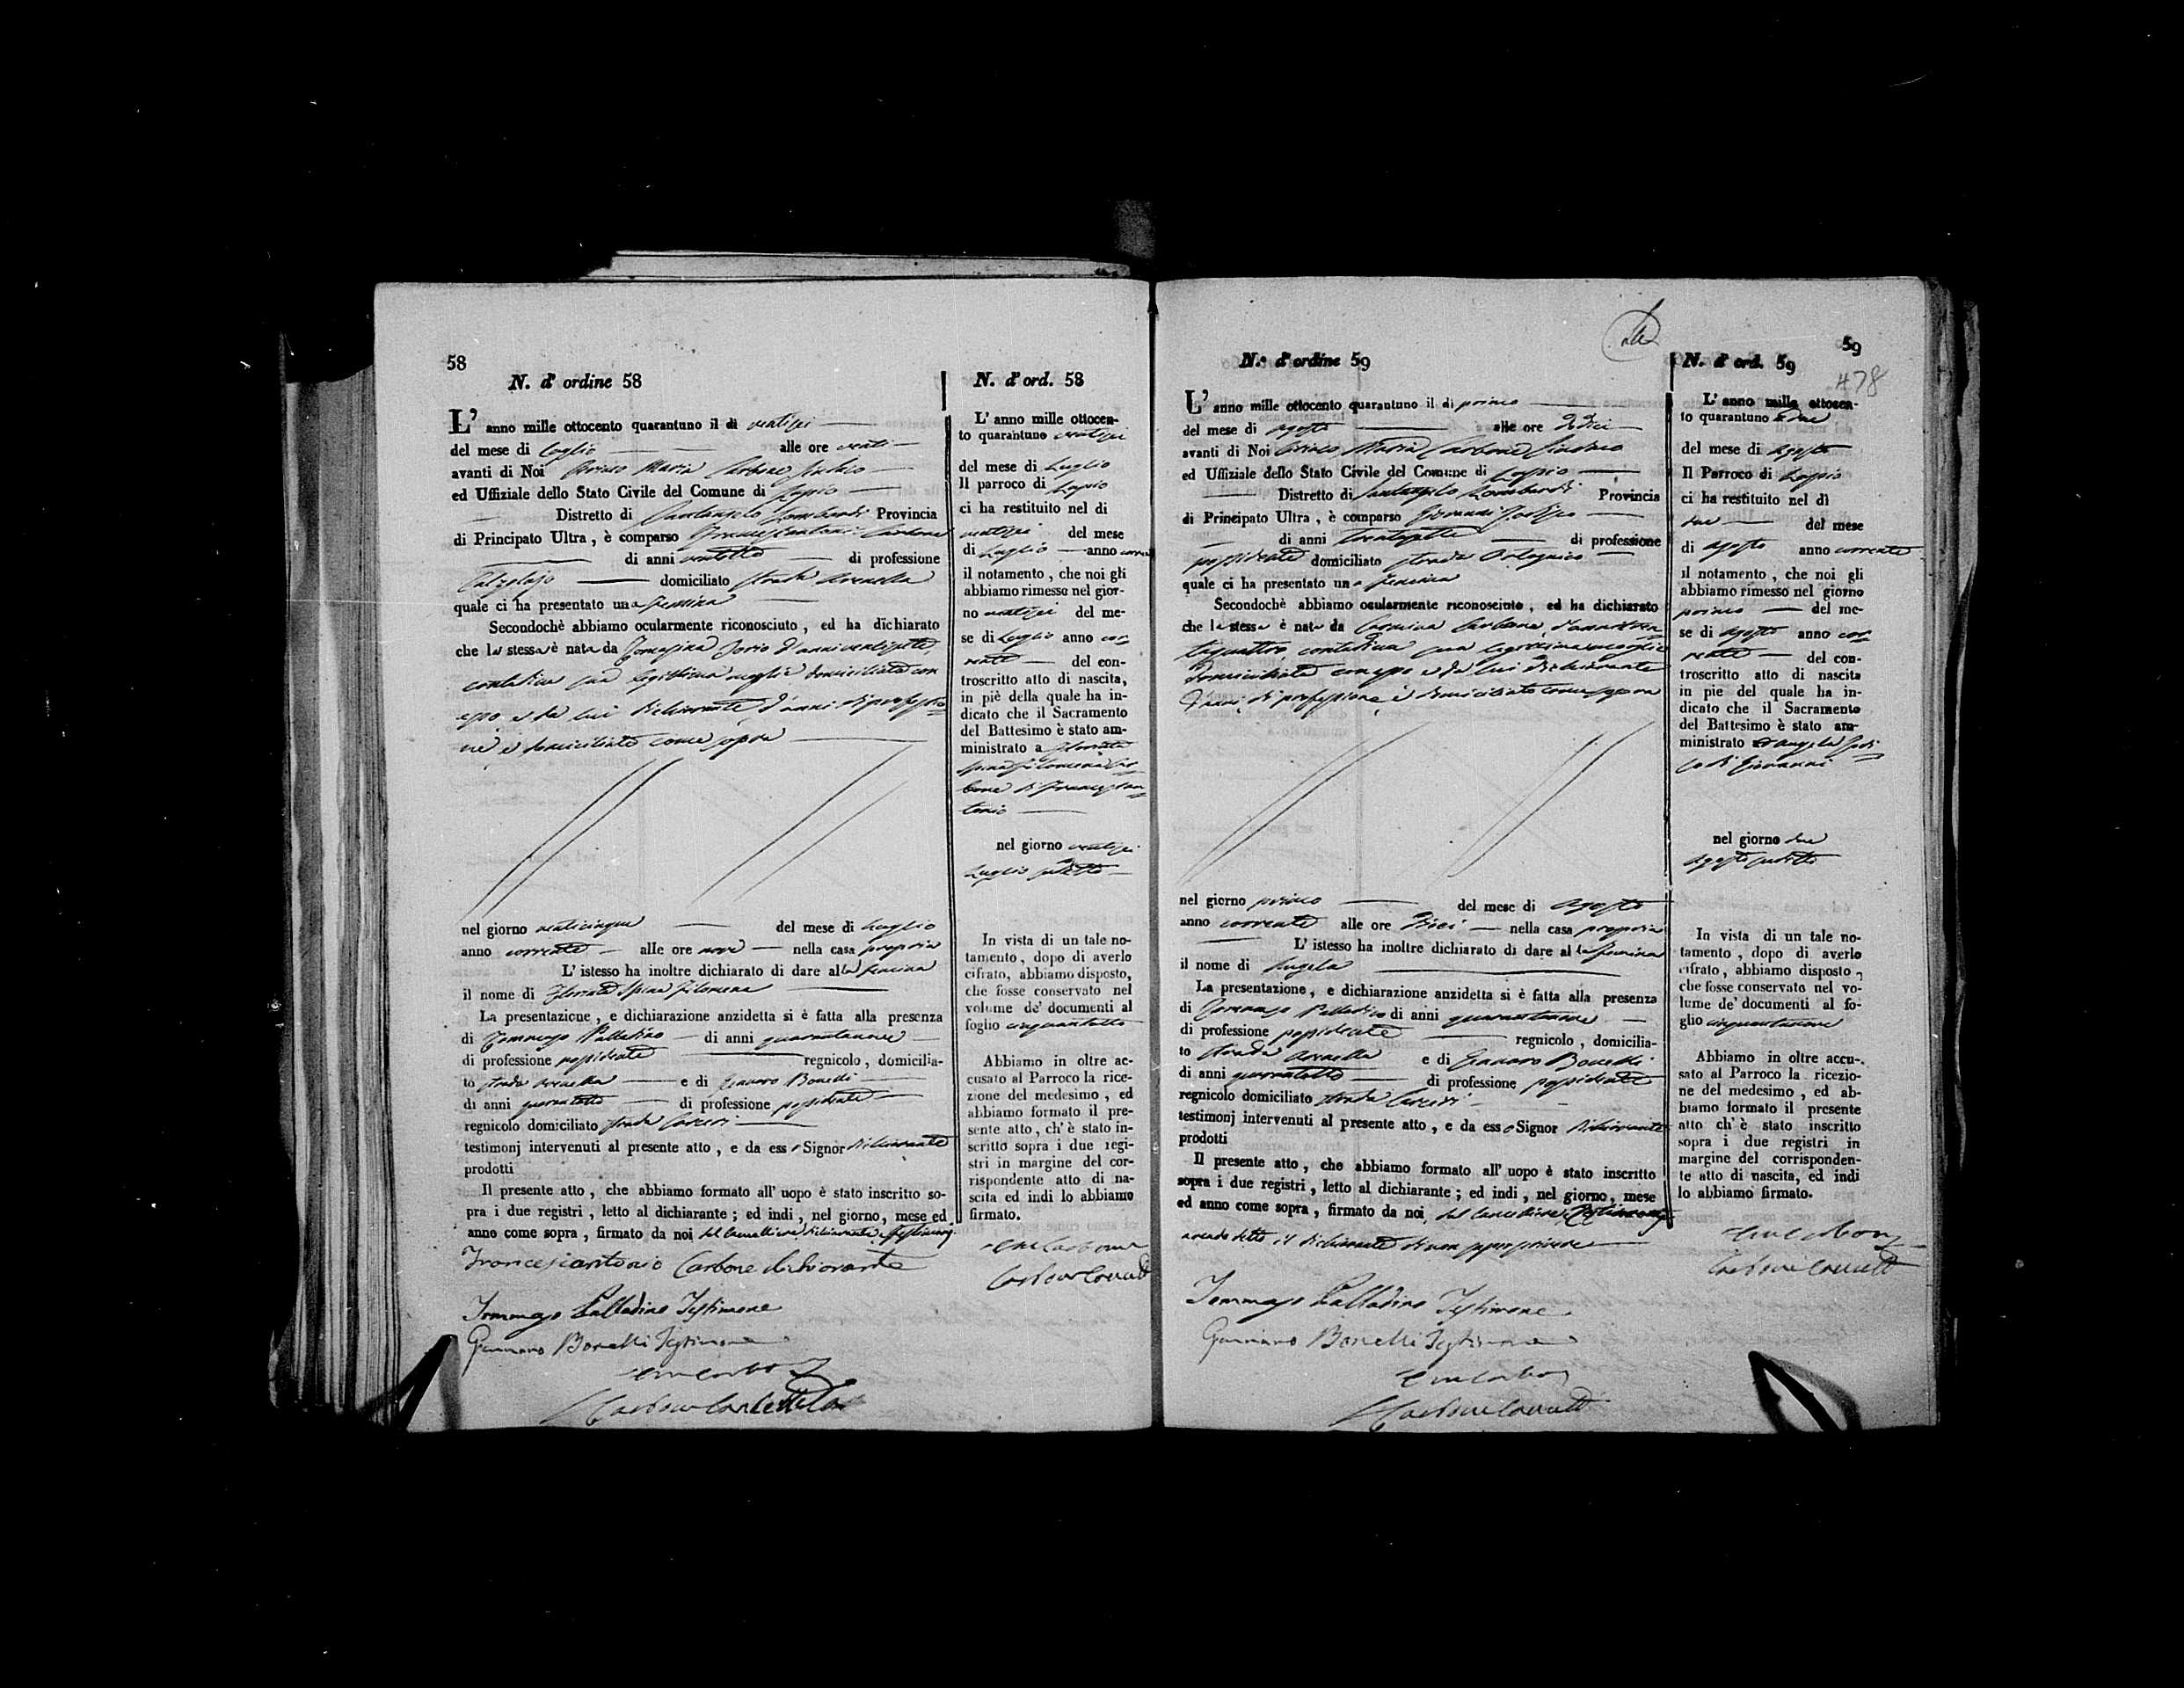 58
N. d' ordine 58
L' anno mille ottocento quarantuno il dì ventisei
del mese di Luglio alle ore venti
avanti di Noi Ciriaco Maria Carbone Sindaco
ed Uffiziale dello Stato Civile del Comune di Lapio
Distretto di Santangelo Lombardi Provincia
di Principato Ultra, è comparso Francescantonio Carbone
di anni ventotto di professione
Calzolajo domiciliato strada Arenella
quale ci ha presentato una femina
Secondochè abbiamo ocularmente riconosciuto, ed ha dichiarato
che la stessa è nata da Tomasina Iorio d'anni ventisette
contadina sua legittima moglie domiciliata con
esso e da lui dichiarante d'anni di professio=
ne e domiciliato come sopra
nel giorno venticinque del mese di Luglio
anno corrente alle ore nove nella casa propria
L' istesso ha inoltre dichiarato di dare alla femina
il nome di Florinda Spina Filomena
La presentazione, e dichiarazione anzidetta si è fatta alla presenza
di Tommaso Palladino di anni quarantanove
di professione possidente regnicolo, domicilia-
to strada Arenella e di Gennaro Bonelli
di anni quarantotto di professione possidente
regnicolo domiciliato strada Carceri
testimonj intervenuti al presente atto, e da esso Signor dichiarante
prodotti
Il presente atto, che abbiamo formato all' uopo è stato inscritto so-
pra i due registri, letto al dichiarante; ed indi, nel giorno, mese ed
anno come sopra, firmato da noi dal Cancelliere dichiarante e testimonj
Francescantonio Carbone dichiarante
Tommaso Palladino Testimone
Gennaro Bonelli Testimone
Carbone
N. d' ord. 58
L' anno mille ottocen-
to quarantuno ventisei
del mese di Luglio
Il parroco di Lapio
ci ha restituito nel di
ventisei del mese
di Luglio anno corrente
il notamento, che noi gli
abbiamo rimesso nel gior-
no ventisei del me-
se di Luglio anno cor=
rente del con-
troscritto atto di nascita,
in piè della quale ha in-
dicato che il Sacramento
del Battesimo è stato am-
ministrato a Florinda
Spina Filomena Car=
bone di Francescan=
tonio
nel giorno ventisei
Luglio suddetto
In vista di un tale no-
tamento, dopo di averlo
cifrato, abbiamo disposto,
che fosse conservato nel
volume de' documenti al
foglio cinquantotto
Abbiamo in oltre ac-
cusato al Parroco la rice-
zione del medesimo, ed
abbiamo formato il pre-
sente atto, ch' è stato in-
scritto sopra i due regi-
stri in margine del cor-
rispondente atto di na-
scita ed indi lo abbiamo
firmato.
59
478
N.° d' ordine 59
L' anno mille ottocento quarantuno il di primo
del mese di Agosto alle ore dodici
avanti di Noi Ciriaco Maria Carbone Sindaco
ed Uffiziale dello Stato Civile del Comune di Lapio
Distretto di Santangelo Lombardi Provincia
di Principato Ultra, è comparso Giovanni Jodice
di anni trentasette di professione
possidente domiciliato strada Orologio
quale ci ha presentato una femina
Secondochè abbiamo ocularmente riconosciuto, ed ha dichiarato
che la stessa è nata da Carmina Carbone d'anni tren=
taquattro contadina sua legittima moglie
domiciliata con esso e da lui dichiarante
d'anni di professione e domiciliato come sopra
nel giorno primo del mese di Agosto
anno corrente alle ore dieci nella casa propria
L' istesso ha inoltre dichiarato di dare alla femina
il nome di Angela
La presentazione, e dichiarazione anzidetta si è fatta alla presenza
di Tommaso Palladino di anni quarantanove
di professione possidente regnicolo, domicilia-
to strada Arenella e di Gennaro Bonelli
di anni quarantotto di professione possidente
regnicolo domiciliato strada Carceri
testimonj intervenuti al presente atto, e da esso Signor dichiarante
prodotti
Il presente atto, che abbiamo formato all' uopo è stato inscritto
sopra i due registri, letto al dichiarante; ed indi, nel giorno, mese
ed anno come sopra, firmato da noi dal Cancelliere e Testimonj
avendo detto il dichiarante di non saper scrivere
Tommaso Palladino Testimone
Gennaro Bonelli Testimone
N. d' ord. 59
L' anno mille ottocen-
to quarantuno a due
del mese di Agosto
Il Parroco di Lapio
ci ha restituito nel dì
due del mese
di Agosto anno corrente
il notamento, che noi gli
abbiamo rimesso nel giorno
primo del me-
se di Agosto anno cor=
rente del con-
troscritto atto di nascita
in pie del quale ha in-
dicato che il Sacramento
del Battesimo è stato am-
ministrato ad Angela Jodi=
ce di Giovanni
nel giorno due
Agosto suddetto
In vista di un tale no-
tamento, dopo di averlo
cifrato, abbiamo disposto,
che fosse conservato nel vo-
lume de' documenti al fo-
glio cinquantanove
Abbiamo in oltre accu-
sato al Parroco la ricezio-
ne del medesimo, ed ab-
biamo formato il presente
atto ch' è stato inscritto
sopra i due registri in
margine del corrisponden-
te atto di nascita, ed indi
lo abbiamo firmato.